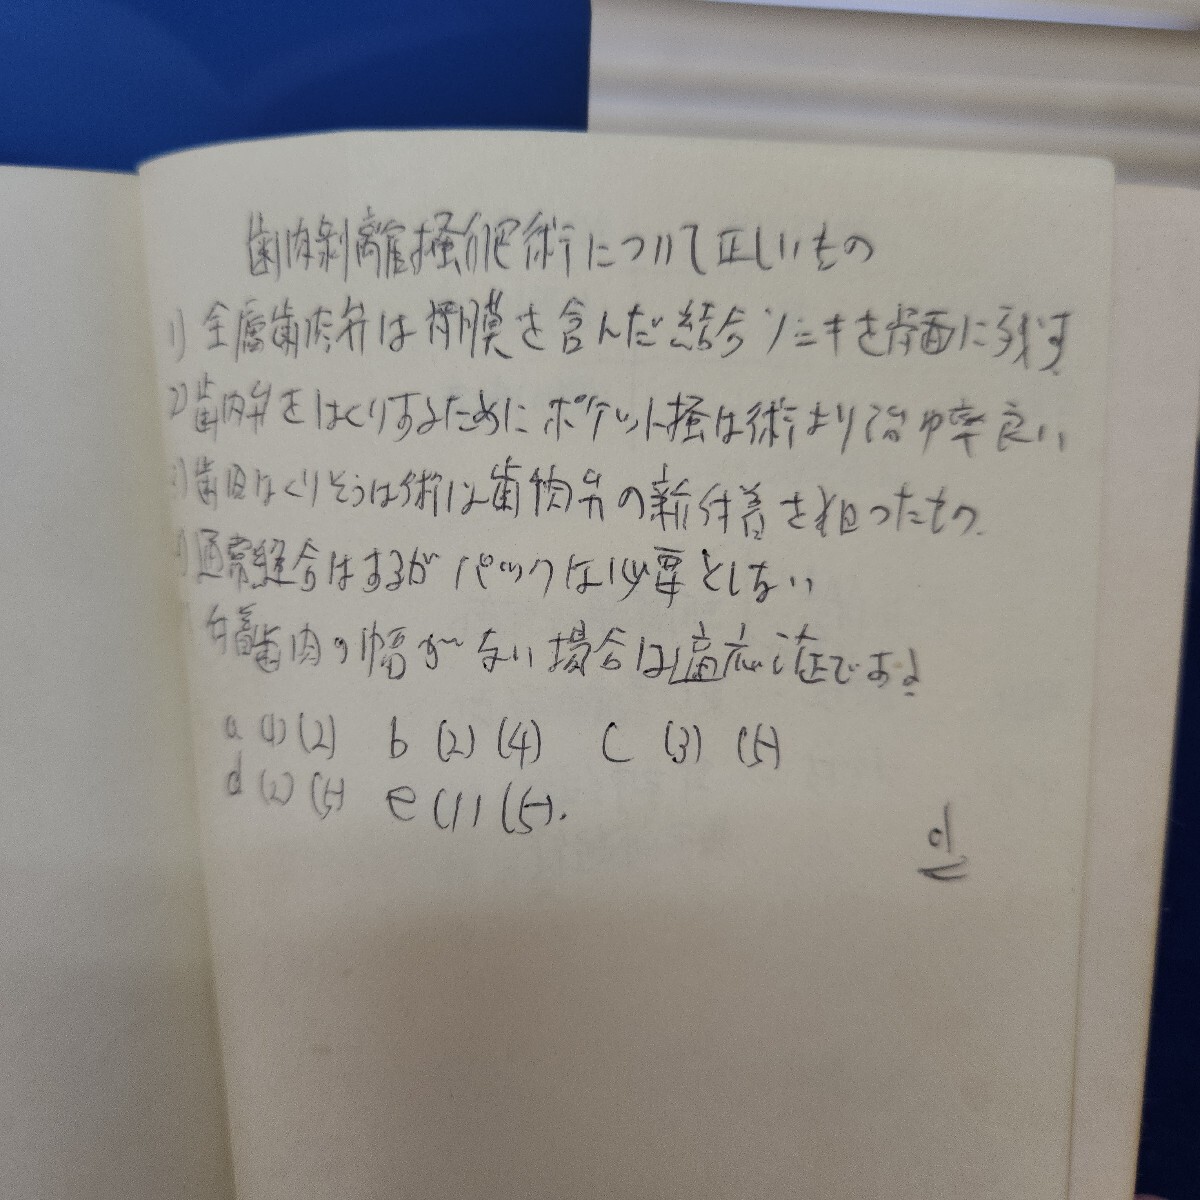 歯肉剥離掻爬術について正しいもの
1) 全層歯肉弁は骨膜を含んだ結合ソシキを骨面に残す
2) 歯肉弁をはくりするためにポケット掻は術より治ゆ率良い
3) 歯肉はくりそうは術は歯肉弁の新付着を狙ったもの
4) 通常縫合はするがパックは必要としない
付着歯肉の幅がない場合は適応症である
a (1) (2) b (2) (4) C (3) (5)
d (2) (5) e (1) (5).
d